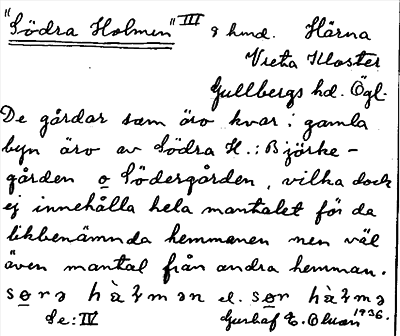 "Södra Holmen" III 9 hmd. Härna
Vreta Kloster
Gullbergs hd. Ögl.
De gårdar som äro kvar i gamla
byn äro av Södra H.: Björke-
gården o Södergården, vilka dock
ej innehålla hela mantalet för de
likbenämnda hemmanen men väl
även mantal från andra hemman.
Se: IV Gustaf E. Olsson 1936.